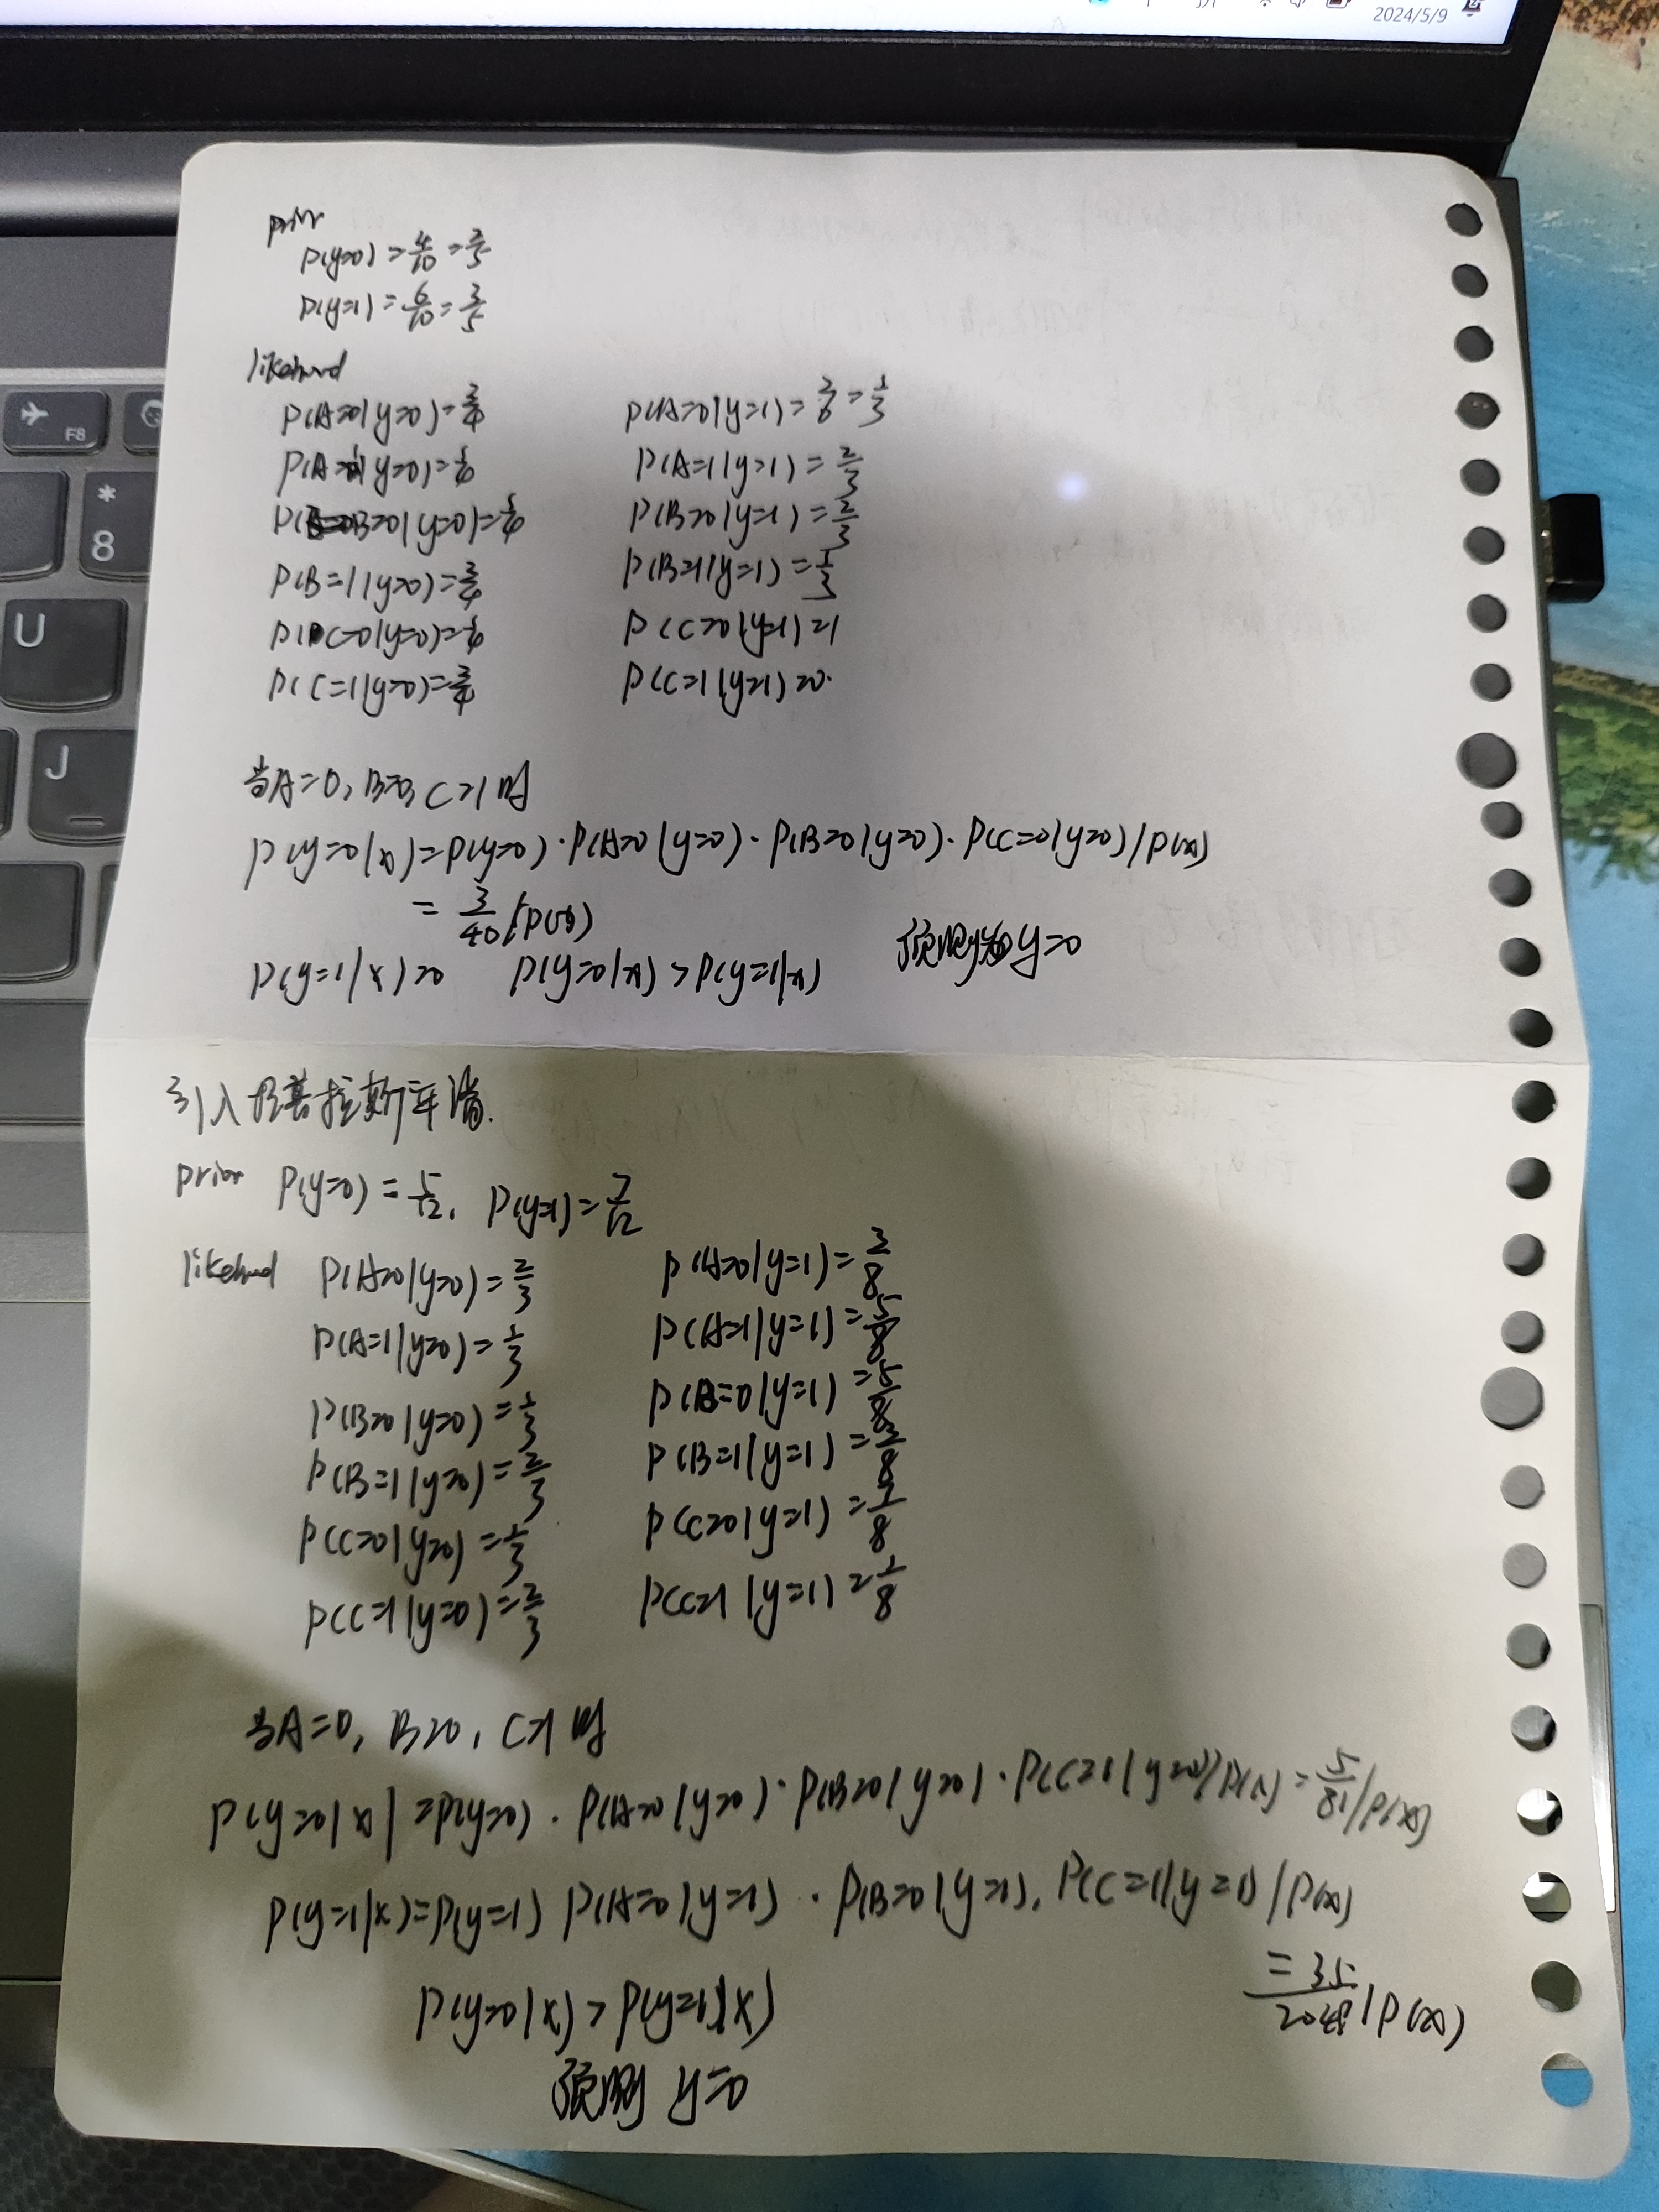 2024/5/9
F8
*
8
U
J
prior
P(y=0) = 4/10 = 2/5
P(y=1) = 6/10 = 3/5
likelihood
P(A=0|y=0) = 3/4 P(A=0|y=1) = 2/6 = 1/3
P(A=1|y=0) = 1/4 P(A=1|y=1) = 2/3
P(B=0|y=0) = 1/4 P(B=0|y=1) = 2/3
P(B=1|y=0) = 3/4 P(B=1|y=1) = 1/3
P(C=0|y=0) = 1/4 P(C=0|y=1) = 1
P(C=1|y=0) = 3/4 P(C=1|y=1) = 0.
当A=0, B=0, C=1时
P(y=0|x) = P(y=0)·P(A=0|y=0)·P(B=0|y=0)·P(C=0|y=0)/P(x)
= 3/40 /P(x)
P(y=1|x) = 0 P(y=0|x) > P(y=1|x) 预测为y=0
引入拉普拉斯平滑.
prior P(y=0) = 5/12, P(y=1) = 7/12
likelihood P(A=0|y=0) = 2/3 P(A=0|y=1) = 3/8
P(A=1|y=0) = 1/3 P(A=1|y=1) = 5/8
P(B=0|y=0) = 1/3 P(B=0|y=1) = 5/8
P(B=1|y=0) = 2/3 P(B=1|y=1) = 3/8
P(C=0|y=0) = 1/3 P(C=0|y=1) = 7/8
P(C=1|y=0) = 2/3 P(C=1|y=1) = 1/8
当A=0, B=0, C=1时
P(y=0|x) = P(y=0)·P(A=0|y=0)·P(B=0|y=0)·P(C=1|y=0)/P(x) = 5/81 /P(x)
P(y=1|x) = P(y=1) P(A=0|y=1)·P(B=0|y=1), P(C=1|y=1)/P(x)
= 35/2048 /P(x)
P(y=0|x) > P(y=1|x)
预测 y=0